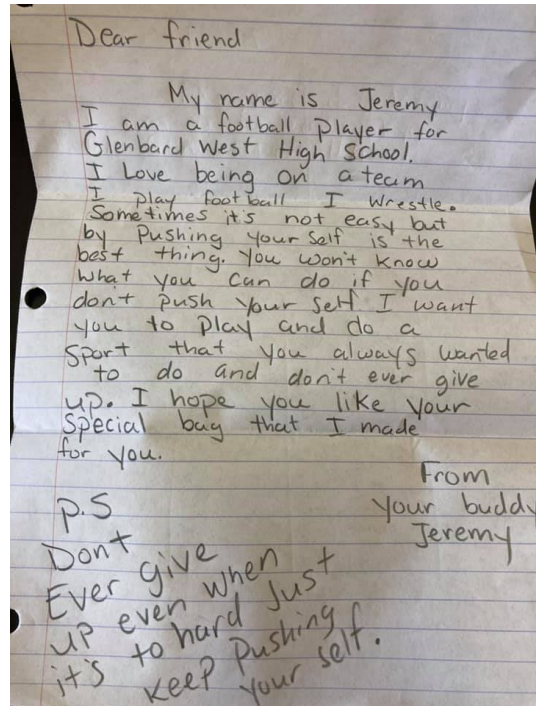 Dear friend
My name is Jeremy
I am a football player for
Glenbard West High School.
I Love being on a team
I play football I wrestle.
Sometimes it's not easy but
by Pushing your self is the
best thing. You won't know
what you can do if you
don't push your self I want
you to play and do a
sport that you always wanted
to do and don't ever give
up. I hope you like your
special bag that I made
for you.
From
your buddy
Jeremy
P.S
Dont
Ever give
up even when
it's to hard Just
keep pushing
your self.